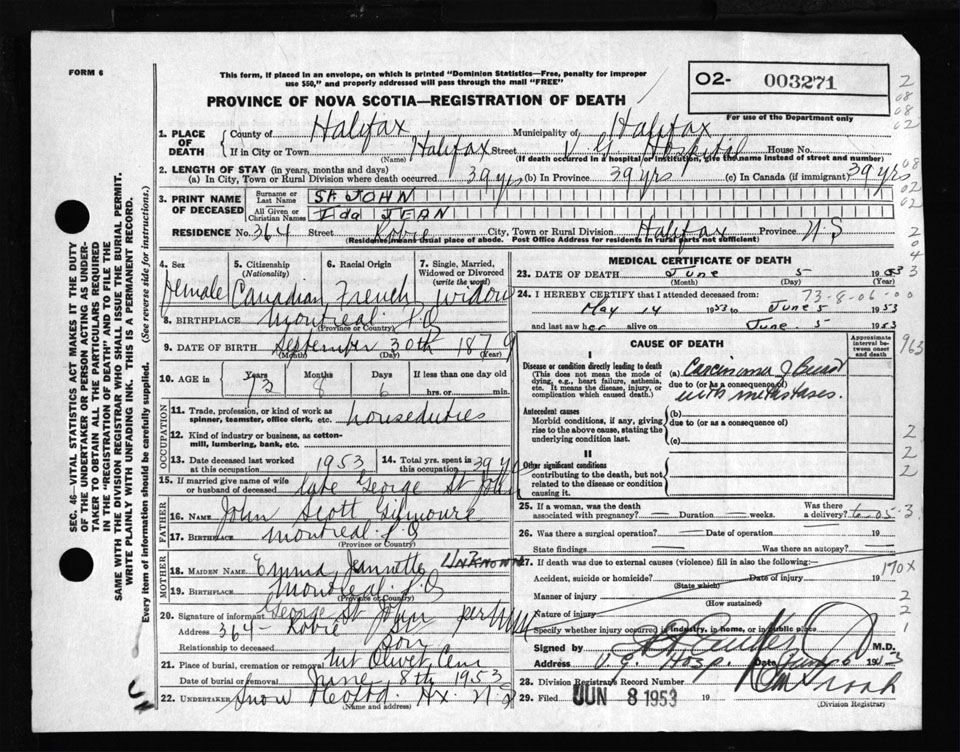 FORM 6
This form, if placed in an envelope, on which is printed "Dominion Statistics—Free, penalty for improper
use $50," and properly addressed will pass through the mail "FREE"
O2- 003271
PROVINCE OF NOVA SCOTIA—REGISTRATION OF DEATH
For use of the Department only
1. PLACE OF DEATH
County of Halifax Municipality of Halifax
If in City or Town Halifax Street V. G. Hospital House No.
(Name) (If death occurred in a hospital or institution, give the name instead of street and number)
2. LENGTH OF STAY (in years, months and days)
(a) In City, Town or Rural Division where death occurred 39 yrs (b) In Province 39 yrs (c) In Canada (if immigrant) 39 yrs
3. PRINT NAME OF DECEASED
Surname or Last Name St. JOHN
All Given or Christian Names Ida JEAN
RESIDENCE No. 364 Street Robie City, Town or Rural Division Halifax Province N S
(Residence means usual place of abode. Post Office Address for residents in rural parts not sufficient)
4. Sex Female
5. Citizenship (Nationality) Canadian
6. Racial Origin French
7. Single, Married, Widowed or Divorced (write the word) widow
8. BIRTHPLACE Montreal P.Q
(Province or Country)
9. DATE OF BIRTH September 30th 1879
(Month) (Day) (Year)
10. AGE Years 73 Months 8 Days 6 If less than one day old
hrs. or min.
OCCUPATION
11. Trade, profession, or kind of work as spinner, teamster, office clerk, etc. houseduties
12. Kind of industry or business, as cotton-mill, lumbering, bank, etc.
13. Date deceased last worked at this occupation 1953
14. Total yrs. spent in this occupation 39 yrs
15. If married give name of wife or husband of deceased Late George St John
FATHER
16. NAME John Scott Gilmoure
17. BIRTHPLACE Montreal P.Q
(Province or Country)
MOTHER
18. MAIDEN NAME Emma Jennette UNKNOWN
19. BIRTHPLACE Montreal P.Q
(Province or Country)
20. Signature of informant George St John per
Address 364- Robie St
Relationship to deceased Son
21. Place of burial, cremation or removal Mt Olivet Cem
Date of burial or removal June 8th 1953
22. UNDERTAKER Snow Hx. N S
(Name and address)
MEDICAL CERTIFICATE OF DEATH
23. DATE OF DEATH June 5 1953
(Month) (Day) (Year)
73-8-06-00
24. I HEREBY CERTIFY that I attended deceased from:
May 14 1953 to June 5 1953
and last saw her alive on June 5 1953
CAUSE OF DEATH
Approximate interval between onset and death
I
Disease or condition directly leading to death
(This does not mean the mode of dying, e.g., heart failure, asthenia, etc. It means the disease, injury, or complication which caused death.)
(a) Carcinoma of Breast
due to (or as a consequence of)
with metastases.
Antecedent causes
Morbid conditions, if any, giving rise to the above cause, stating the underlying condition last.
(b)
due to (or as a consequence of)
(c)
II
Other significant conditions
contributing to the death, but not related to the disease or condition causing it.
25. If a woman, was the death associated with pregnancy? — Duration — weeks. Was there a delivery?
6-05-3
26. Was there a surgical operation? — Date of operation
State findings Was there an autopsy? —
27. If death was due to external causes (violence) fill in also the following:
Accident, suicide or homicide? Date of injury 19
(State which)
170X
Manner of injury
(How sustained)
Nature of injury
Specify whether injury occurred in industry, in home, or in public place
Signed by M.D.
Address V.G. Hosp. Date June 6 1953
28. Division Registrar's Record Number
29. Filed JUN 8 1953 19
(Division Registrar)
SEC. 46—VITAL STATISTICS ACT MAKES IT THE DUTY
OF THE UNDERTAKER OR PERSON ACTING AS UNDER-
TAKER TO OBTAIN ALL THE PARTICULARS REQUIRED
IN THE "REGISTRATION OF DEATH" AND TO FILE THE
SAME WITH THE DIVISION REGISTRAR WHO SHALL ISSUE THE BURIAL PERMIT.
WRITE PLAINLY WITH UNFADING INK. THIS IS A PERMANENT RECORD.
Every item of information should be carefully supplied. (See reverse side for instructions.)